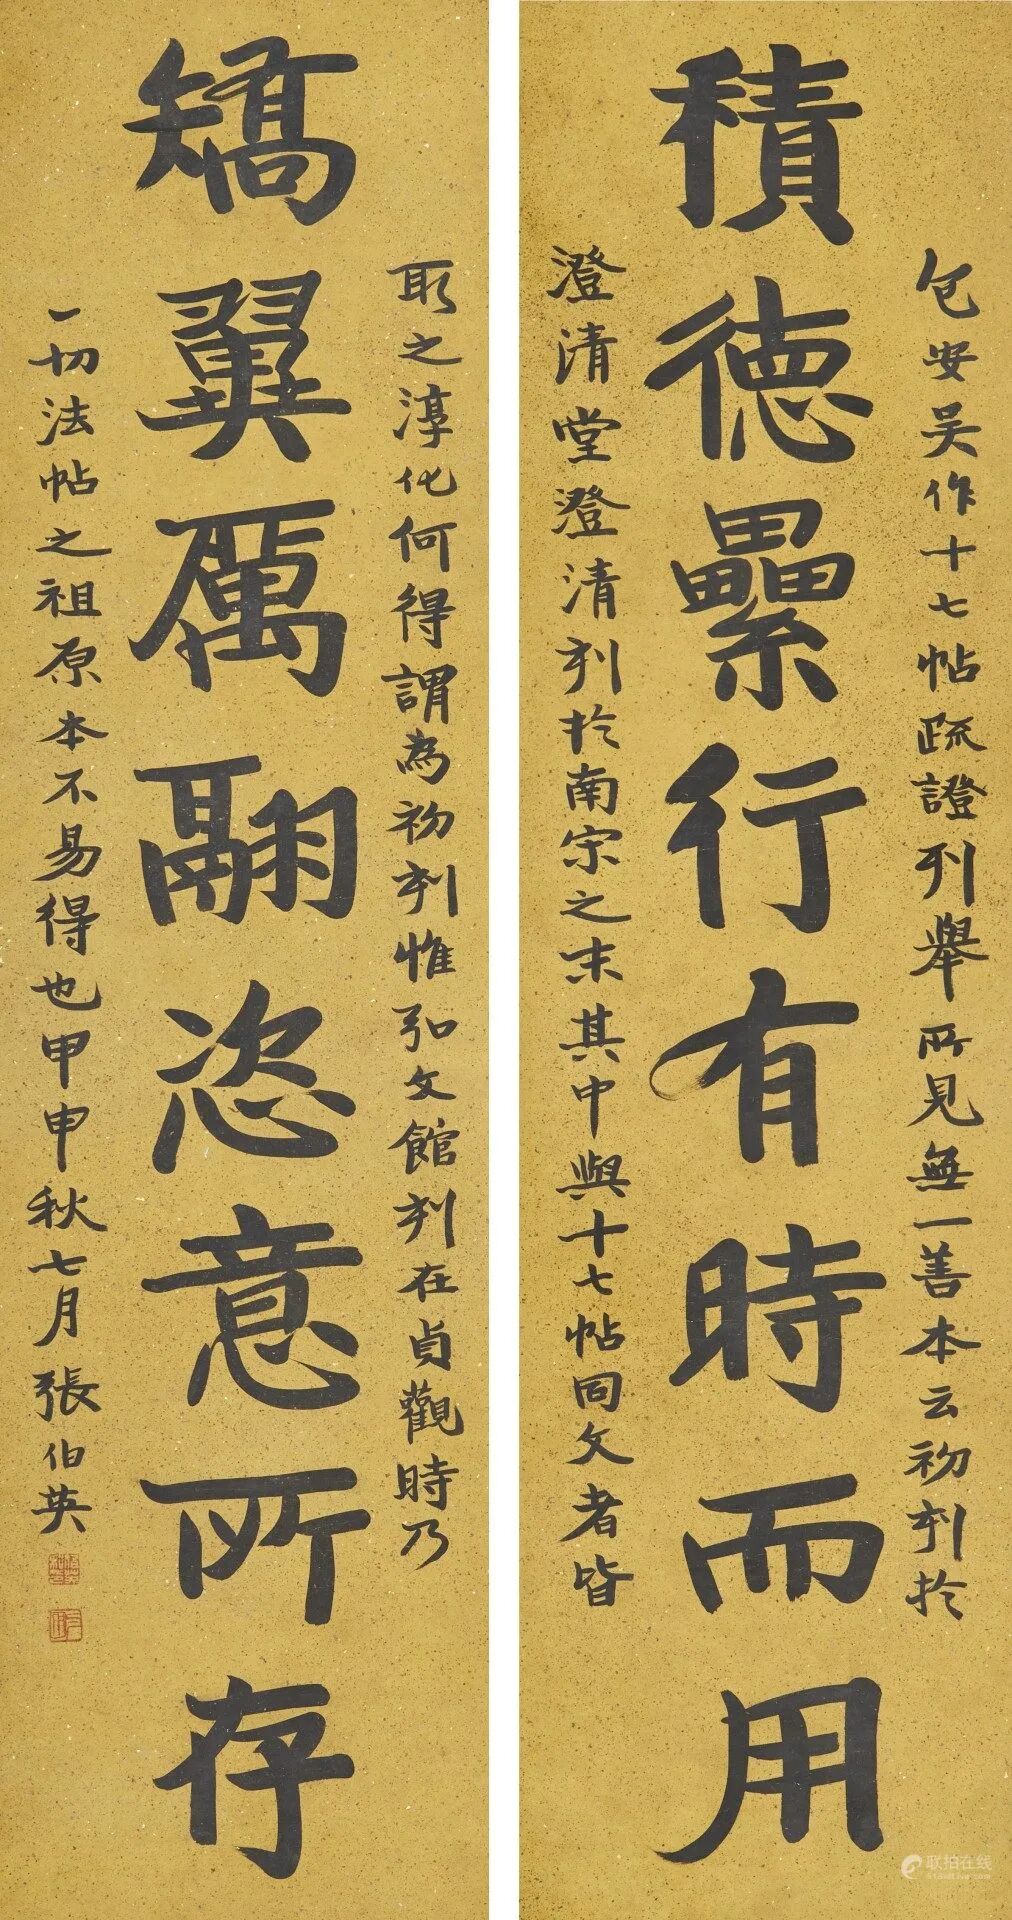 積德纍行有時而用
包安吴作十七帖疏證列舉所見無一善本云初刋於
澄清堂澄清刋於南宋之末其中與十七帖同文者皆
矯翼厲翮恣意所存
取之淳化何得謂為初刋惟弘文館刋在貞觀時乃
一切法帖之祖原本不易得也甲申秋七月張伯英
联拍在线